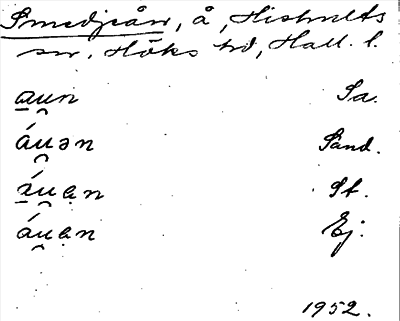 Smedjeån, å, Hishults
sn, Höks hd, Hall. l.
a̲u̯n Sa.
áu̯ən Sand.
á̲u̯ẹn St.
áu̯ẹn Ej.
1952.